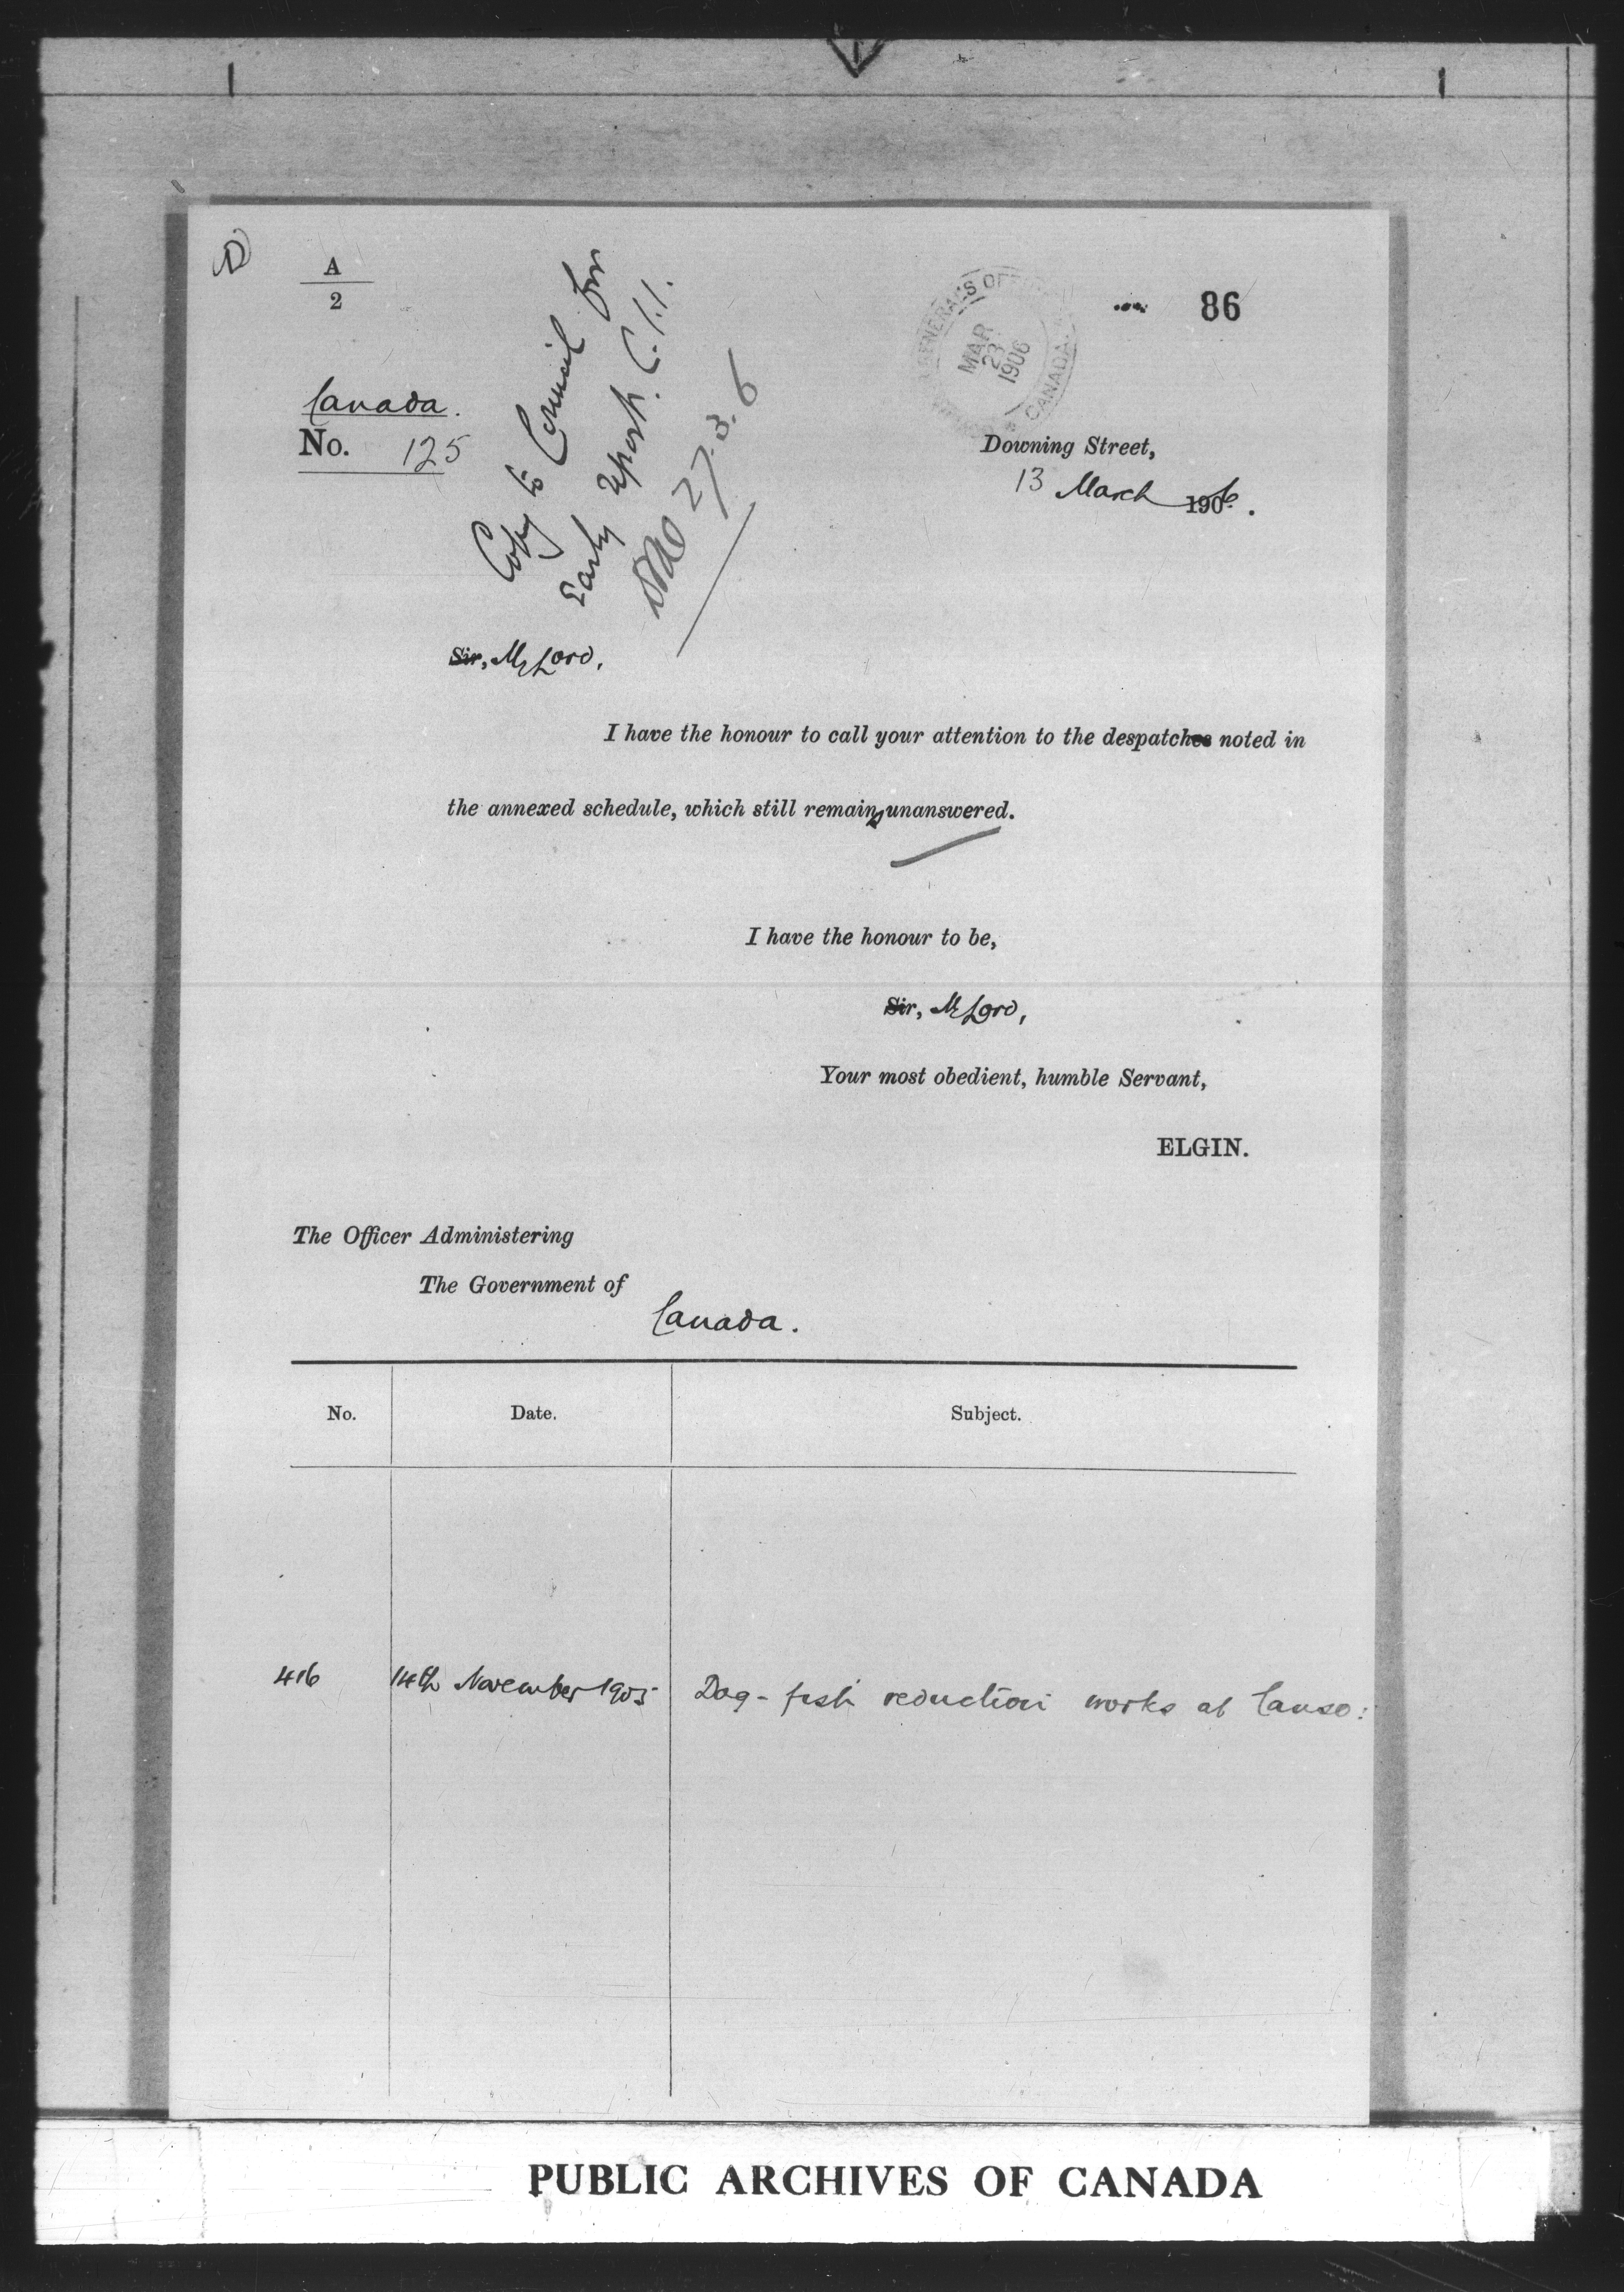 A
2
86
GENERAL'S OFF
MAR
23
1906
CANADA
Canada.
No. 125
Copy to Council for
Early report.
27.3.6
Downing Street,
13 March 1906.
Sir, My Lord,
I have the honour to call your attention to the despatches noted in
the annexed schedule, which still remains unanswered.
I have the honour to be,
Sir, My Lord,
Your most obedient, humble Servant,
ELGIN.
The Officer Administering
The Government of
Canada.
No. Date. Subject.
416 14th November 1905 Dog-fish reduction works at Canso:
PUBLIC ARCHIVES OF CANADA